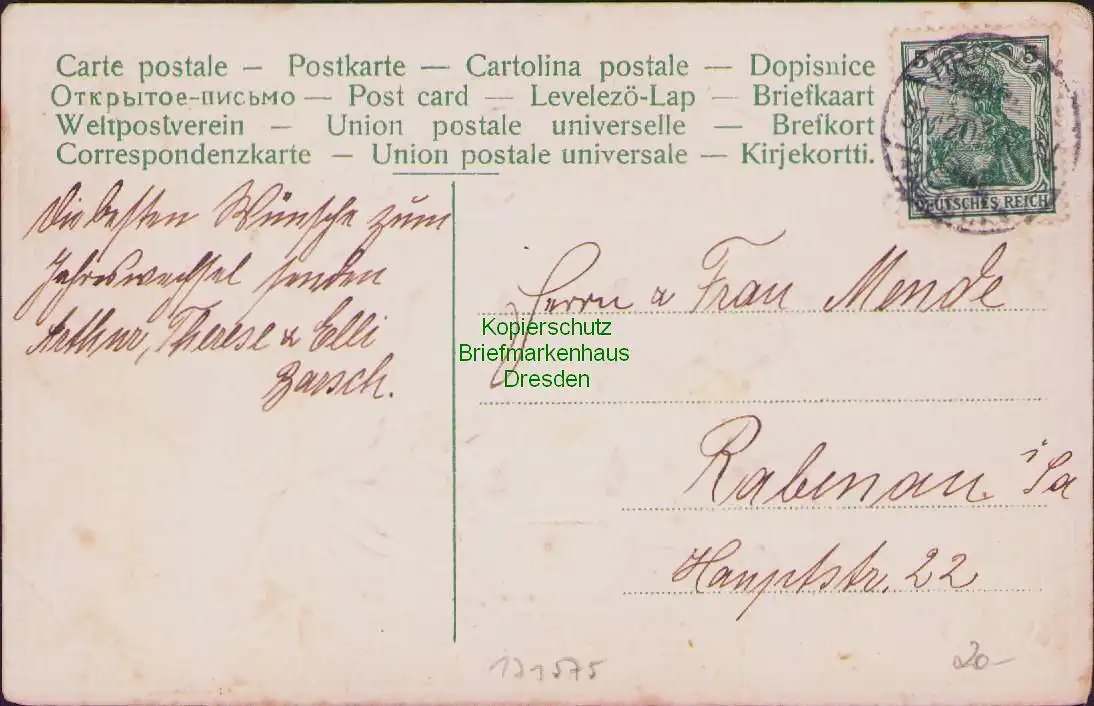 Carte postale — Postkarte — Cartolina postale — Dopisnice
Открытое-письмо — Post card — Levelezö-Lap — Briefkaart
Weltpostverein — Union postale universelle — Brefkort
Correspondenzkarte — Union postale universale — Kirjekortti.
5 5
DEUTSCHES REICH
Die besten Wünsche zum
Jahreswechsel senden
Arthur, Therese & Elli
Baesch.
Herrn & Frau Mende
Kopierschutz
Briefmarkenhaus
Dresden
Rabenau i/Sa
Hauptstr. 22
131575
20-